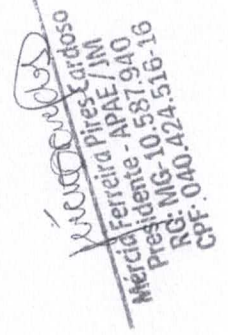 Mércia Ferreira Pires Cardoso
Presidente - APAE / JM
RG: MG-10.587.940
CPF: 040.424.516-16